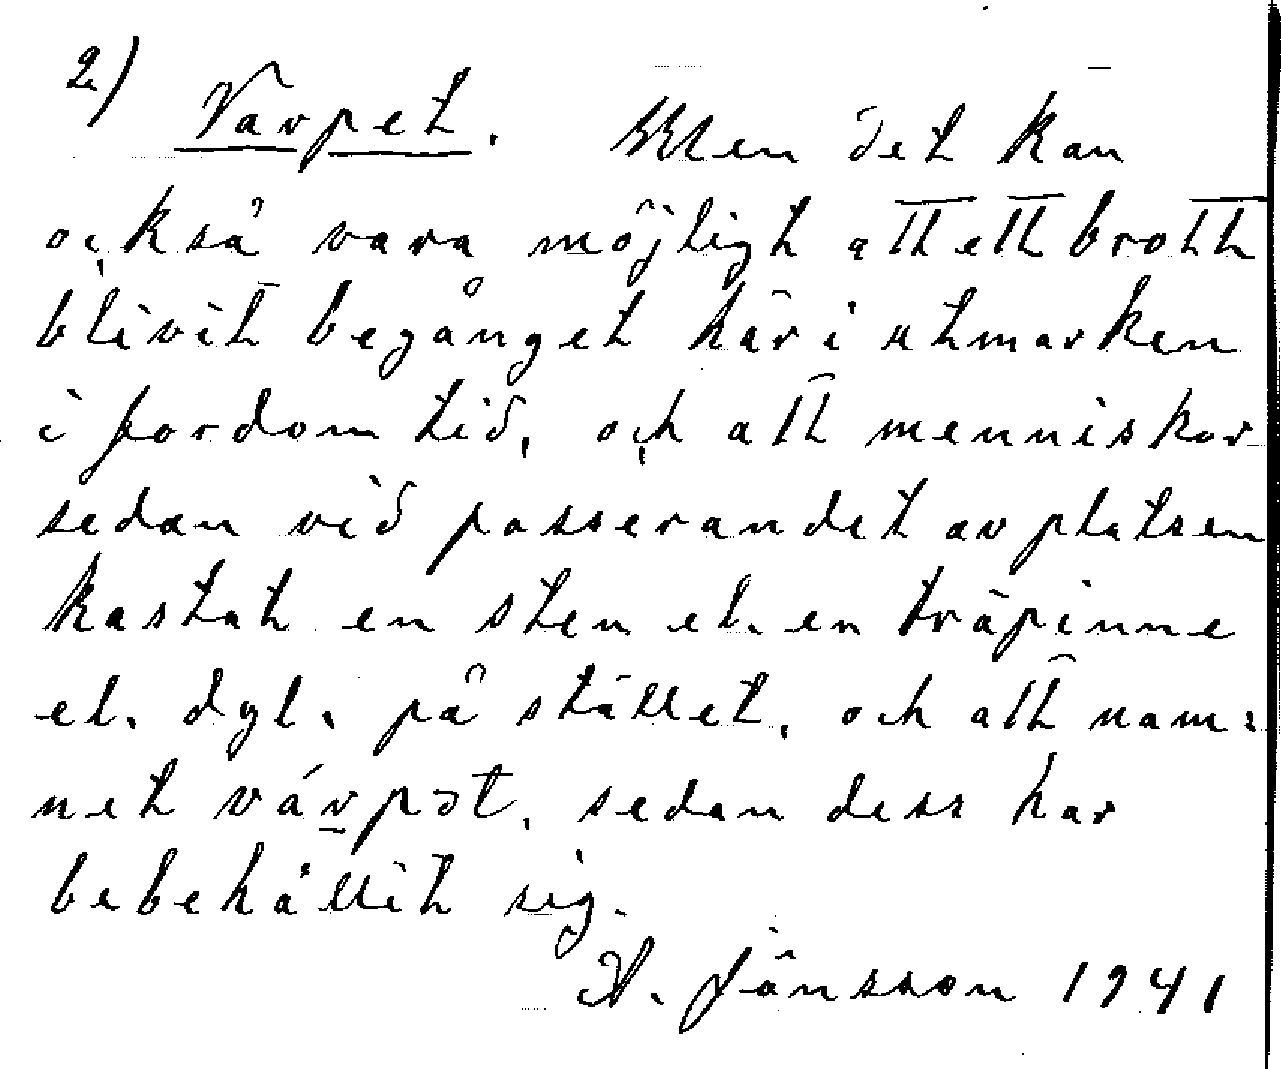 2) Varpet. Men det kan
också vara möjligt att ett brott
blivit begånget här i utmarken
i fordom tid, och att menniskor
sedan vid passerandet av platsen
kastat en sten el. en träpinne
el. dyl. på stället, och att nam:
net várpət, sedan dess har
bebehållit sig.
H. Jönsson 1941